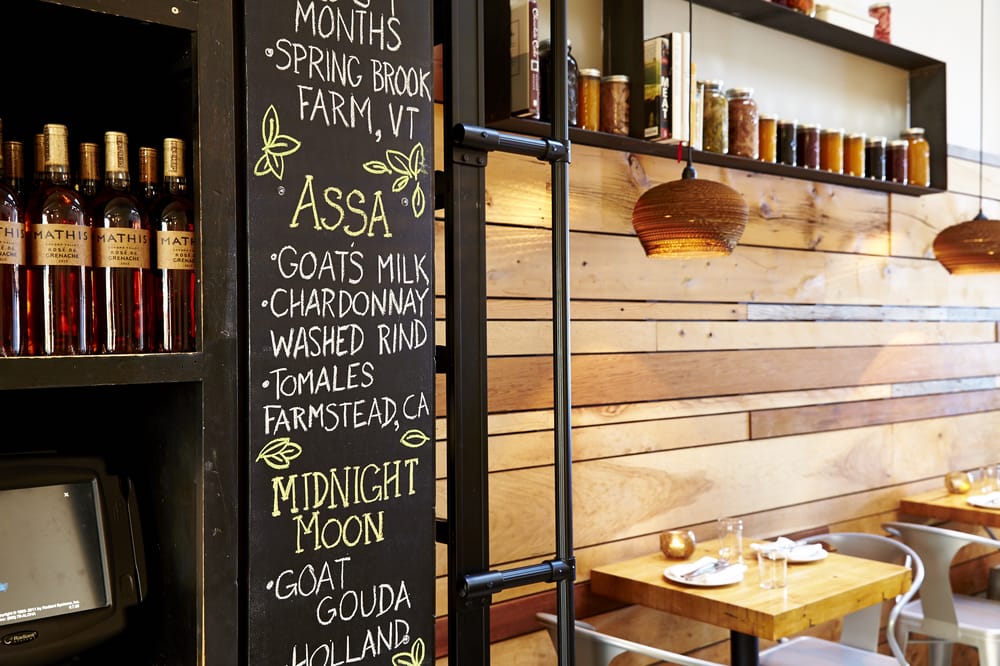 MONTHS
•SPRING BROOK
FARM, VT
ASSA
•GOAT'S MILK
•CHARDONNAY
WASHED RIND
•TOMALES
FARMSTEAD, CA
MIDNIGHT
MOON
•GOAT
GOUDA
HOLLAND
MATHIS
ROSÉ DE
GRENACHE
MATHIS
ROSÉ DE
GRENACHE
MATH
ROSÉ DE
GRENACHE
MEAT
Radiant